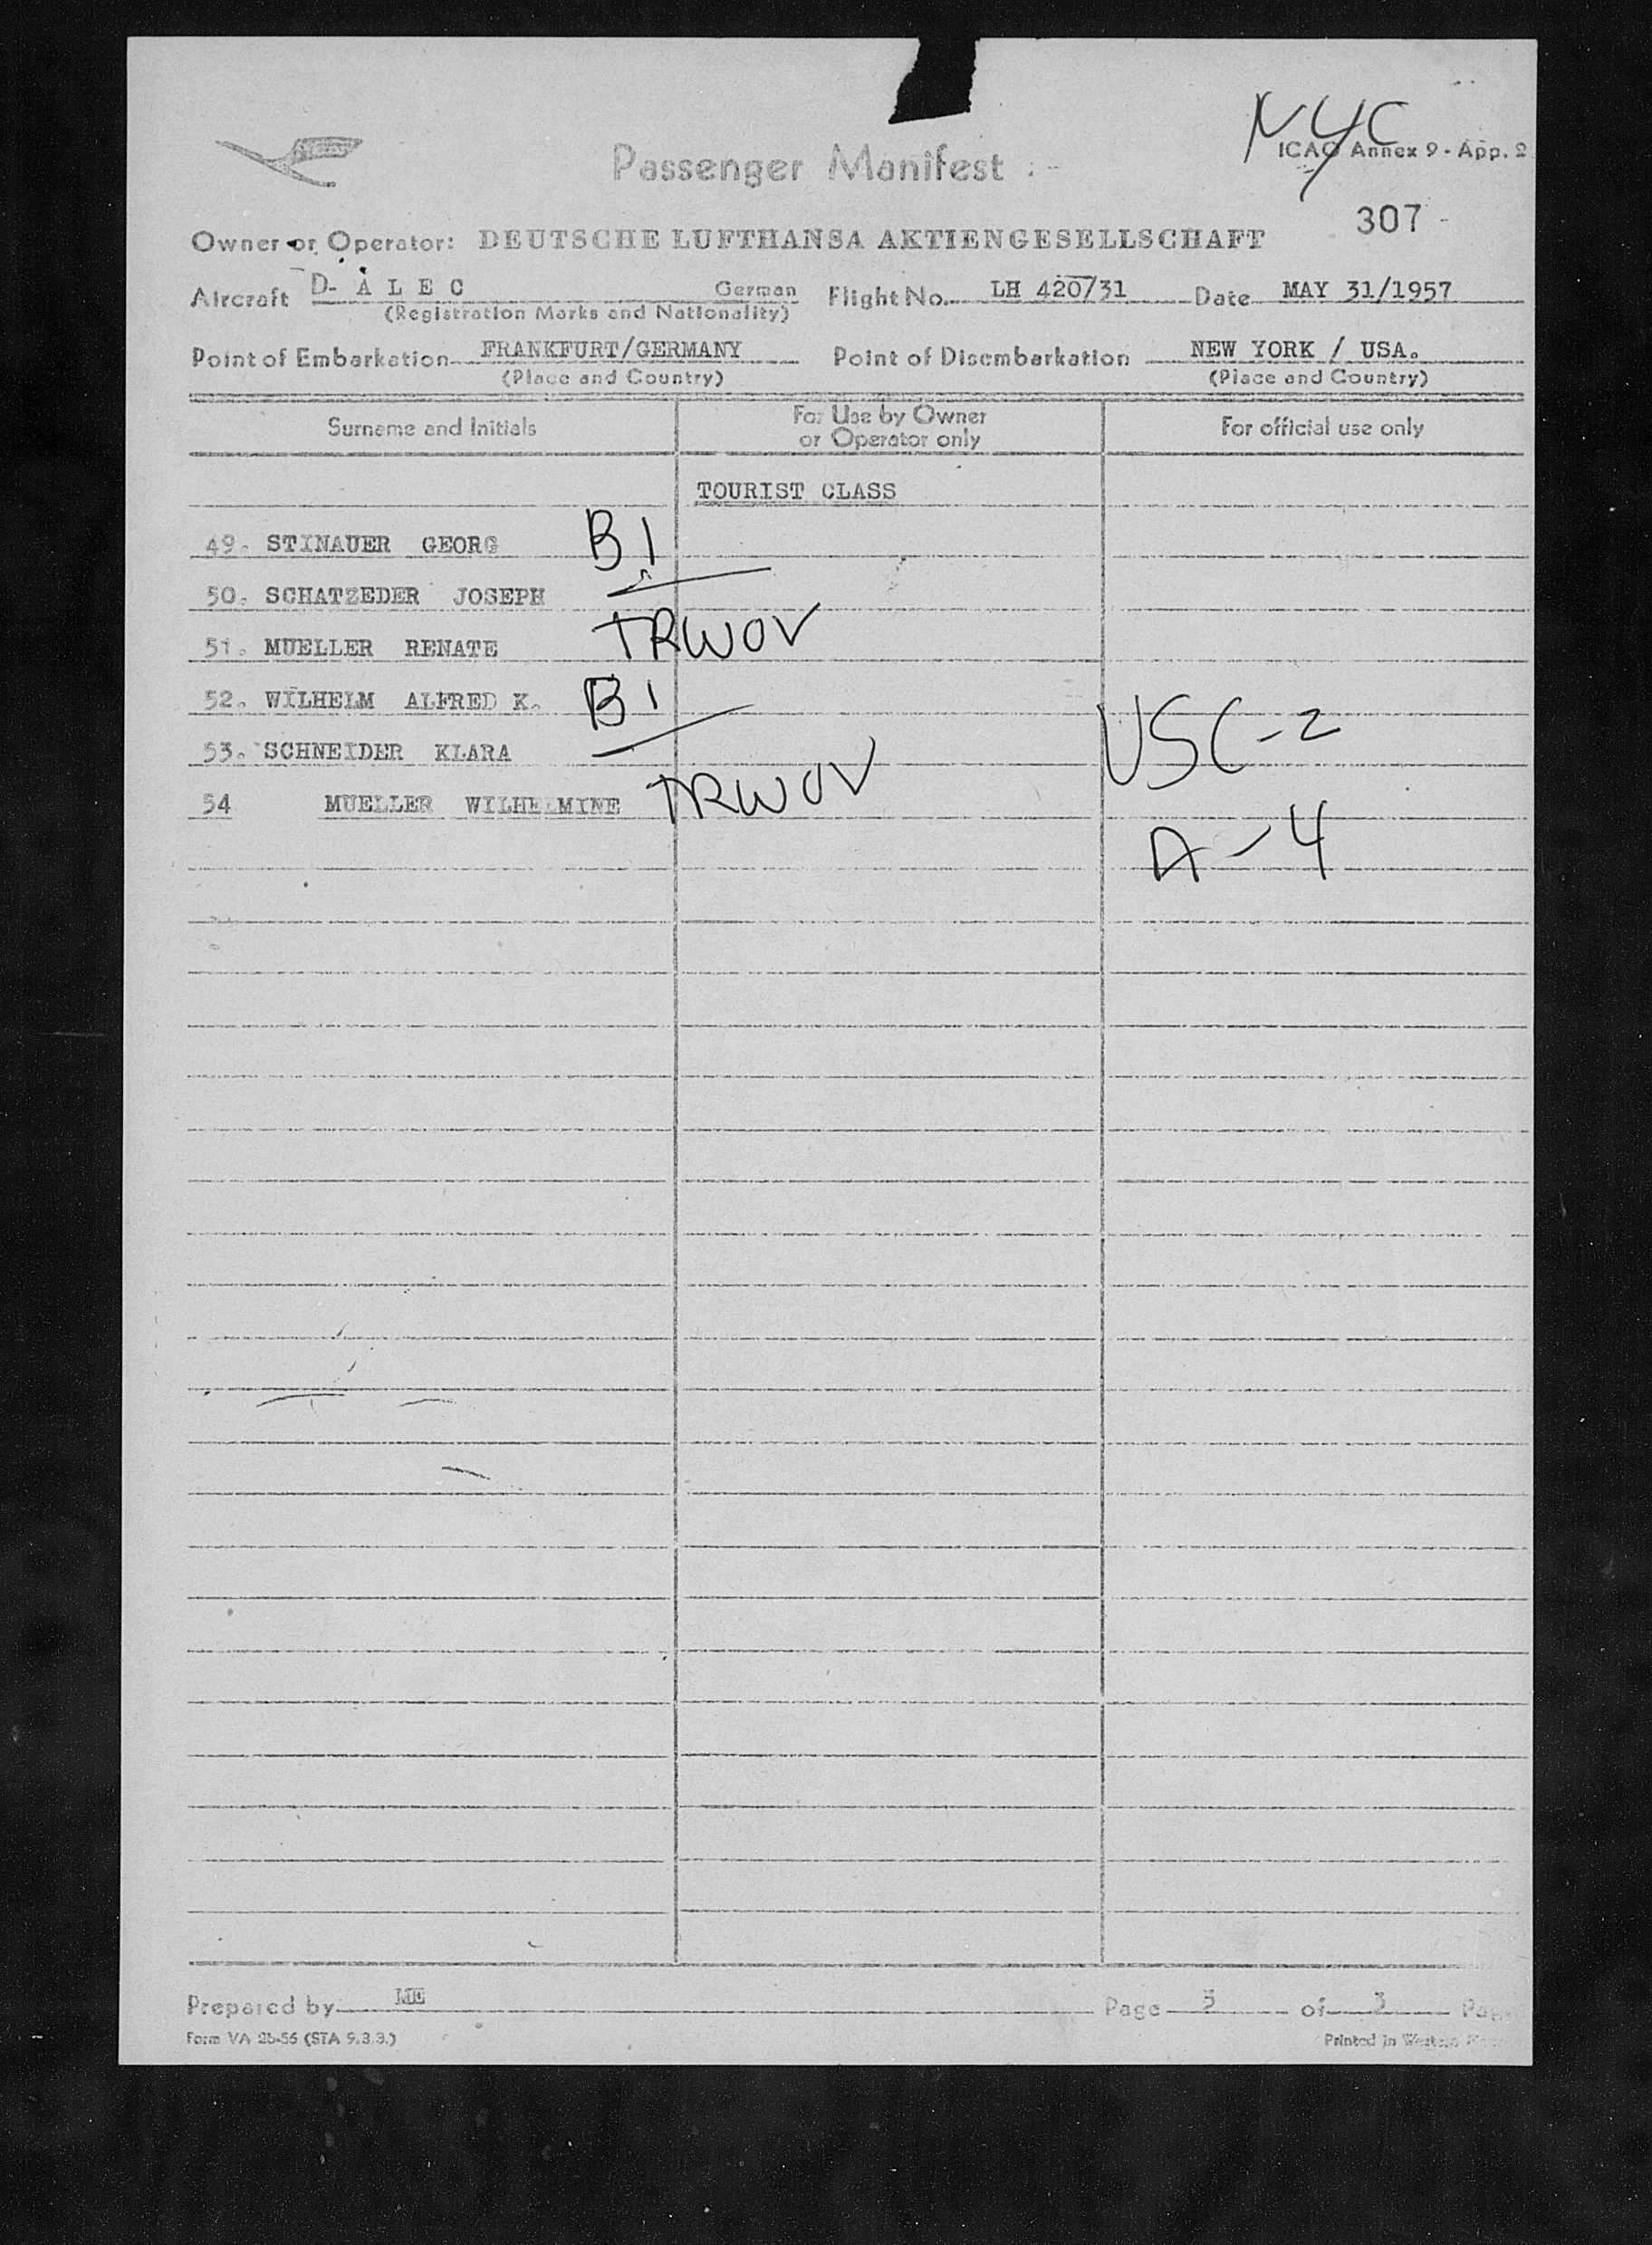 NYC
ICAO Annex 9 - App. 2
Passenger Manifest
307
Owner or Operator: DEUTSCHE LUFTHANSA AKTIENGESELLSCHAFT
Aircraft D- A L E C German Flight No. LH 420/31 Date MAY 31/1957
(Registration Marks and Nationality)
Point of Embarkation FRANKFURT/GERMANY Point of Disembarkation NEW YORK / USA.
(Place and Country) (Place and Country)
Surname and Initials For Use by Owner or Operator only For official use only
TOURIST CLASS
49. STINAUER GEORG B1
50. SCHATZEDER JOSEPH
51. MUELLER RENATE TRWOV
52. WILHELM ALFRED K. B1
USC-2
53. SCHNEIDER KLARA
54 MUELLER WILHELMINE TRWOV
A-4
Prepared by ME Page 3 of 3
Form VA 2b-56 (STA 9.3.3.) Printed in Western